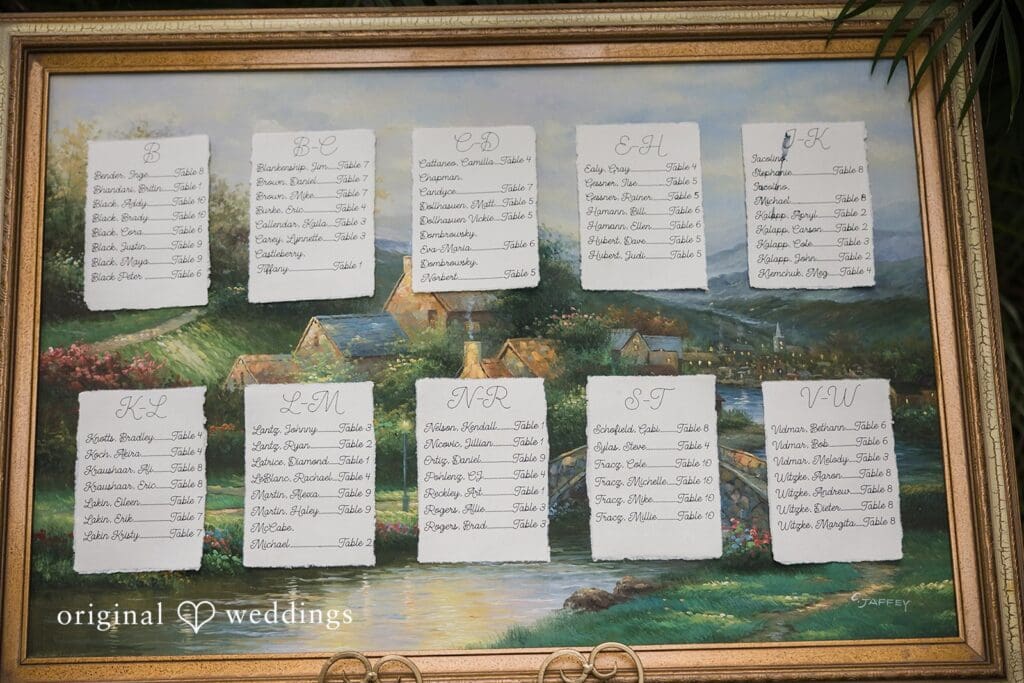 B
Bender, Inge Table 8
Bhandari, Britin Table 1
Black, Addy Table 10
Black, Brady Table 10
Black, Cora Table 6
Black, Justin Table 9
Black, Maya Table 9
Black Peter Table 6
B-C
Blankenship, Jim Table 7
Brown, Daniel Table 7
Brown, Mike Table 7
Burke, Eric Table 4
Callendar, Kaila Table 3
Carey, Lynnette Table 3
Castleberry,
Tiffany Table 1
C-D
Cattaneo, Camilla Table 4
Chapman,
Candyce Table 7
Dollhausen, Matt Table 5
Dollhausen Vickie Table 5
Dombrowsky,
Eva-Maria Table 6
Dombrowsky,
Norbert Table 5
E-H
Ealy, Gray Table 4
Gessner, Ilse Table 5
Gessner, Rainer Table 5
Hamann, Bill Table 6
Hamann, Ellen Table 6
Hubert, Dave Table 5
Hubert, Judi Table 5
J-K
Iacolino,
Stephanie Table 8
Iacolino,
Michael Table 8
Kalapp, April Table 2
Kalapp, Carson Table 2
Kalapp, Cole Table 3
Kalapp, John Table 2
Klemchuk, Meg Table 4
K-L
Knotts, Bradley Table 4
Koch, Table 4
Kraushaar, Aji Table 8
Kraushaar, Eric Table 8
Lakin, Eileen Table 7
Lakin, Erik Table 7
Lakin Kristy Table 7
L-M
Lantz, Johnny Table 3
Lantz, Ryan Table 2
Latrice, Diamond Table 1
LeBlanc, Rachael Table 4
Martin, Alexa Table 9
Martin, Haley Table 9
McCabe,
Michael Table 2
N-R
Nelson, Kendall Table 1
Nicovic, Jillian Table 1
Ortiz, Daniel Table 9
Pohlenz, CJ Table 4
Reckley, Art Table 1
Rogers, Allie Table 3
Rogers, Brad Table 3
S-T
Schofield, Gabi Table 8
Sylas, Steve Table 4
Tracz, Cole Table 10
Tracz, Michelle Table 10
Tracz, Mike Table 10
Tracz, Millie Table 10
V-W
Vidmar, Bethann Table 6
Vidmar, Bob Table 6
Vidmar, Melody Table 3
Witzke, Aaron Table 8
Witzke, Andrew Table 8
Witzke, Dieter Table 8
Witzke, Margita Table 8
C JAFFEY
original weddings